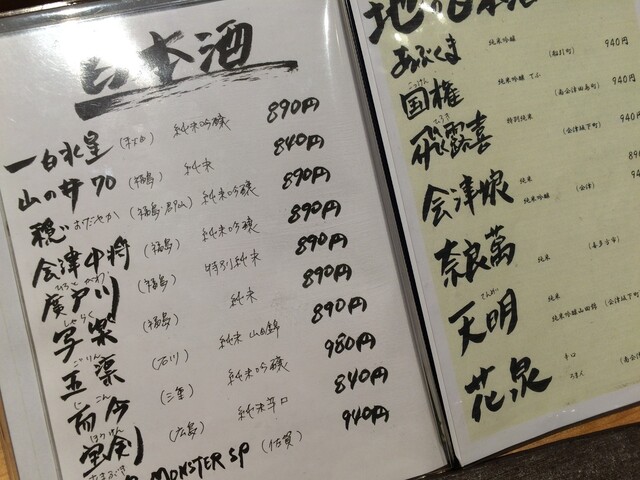 日本酒
一白水星 (秋田) 純米吟醸 890円
山の井70 (福島) 純米 840円
穏 おだやか (福島・郡山) 純米吟醸 890円
会津中将 (福島) 純米吟醸 890円
廣戸川 (福島) 特別純米 890円
写楽 (福島) 純米 890円
五凜 (石川) 純米 山田錦 890円
而今 (三重) 純米吟醸 980円
宝剣 (広島) 純米辛口 840円
MONSTER SP (佐賀) 940円
あぶくま 純米吟醸 (船引町) 940円
国権 純米吟醸 てふ (南会津田島町) 940円
飛露喜 特別純米 (会津坂下町) 940円
会津娘 純米 (会津)
純米吟醸
奈良萬 純米 (喜多方市)
天明 純米
純米吟醸山田錦 (会津坂下町)
花泉 辛口